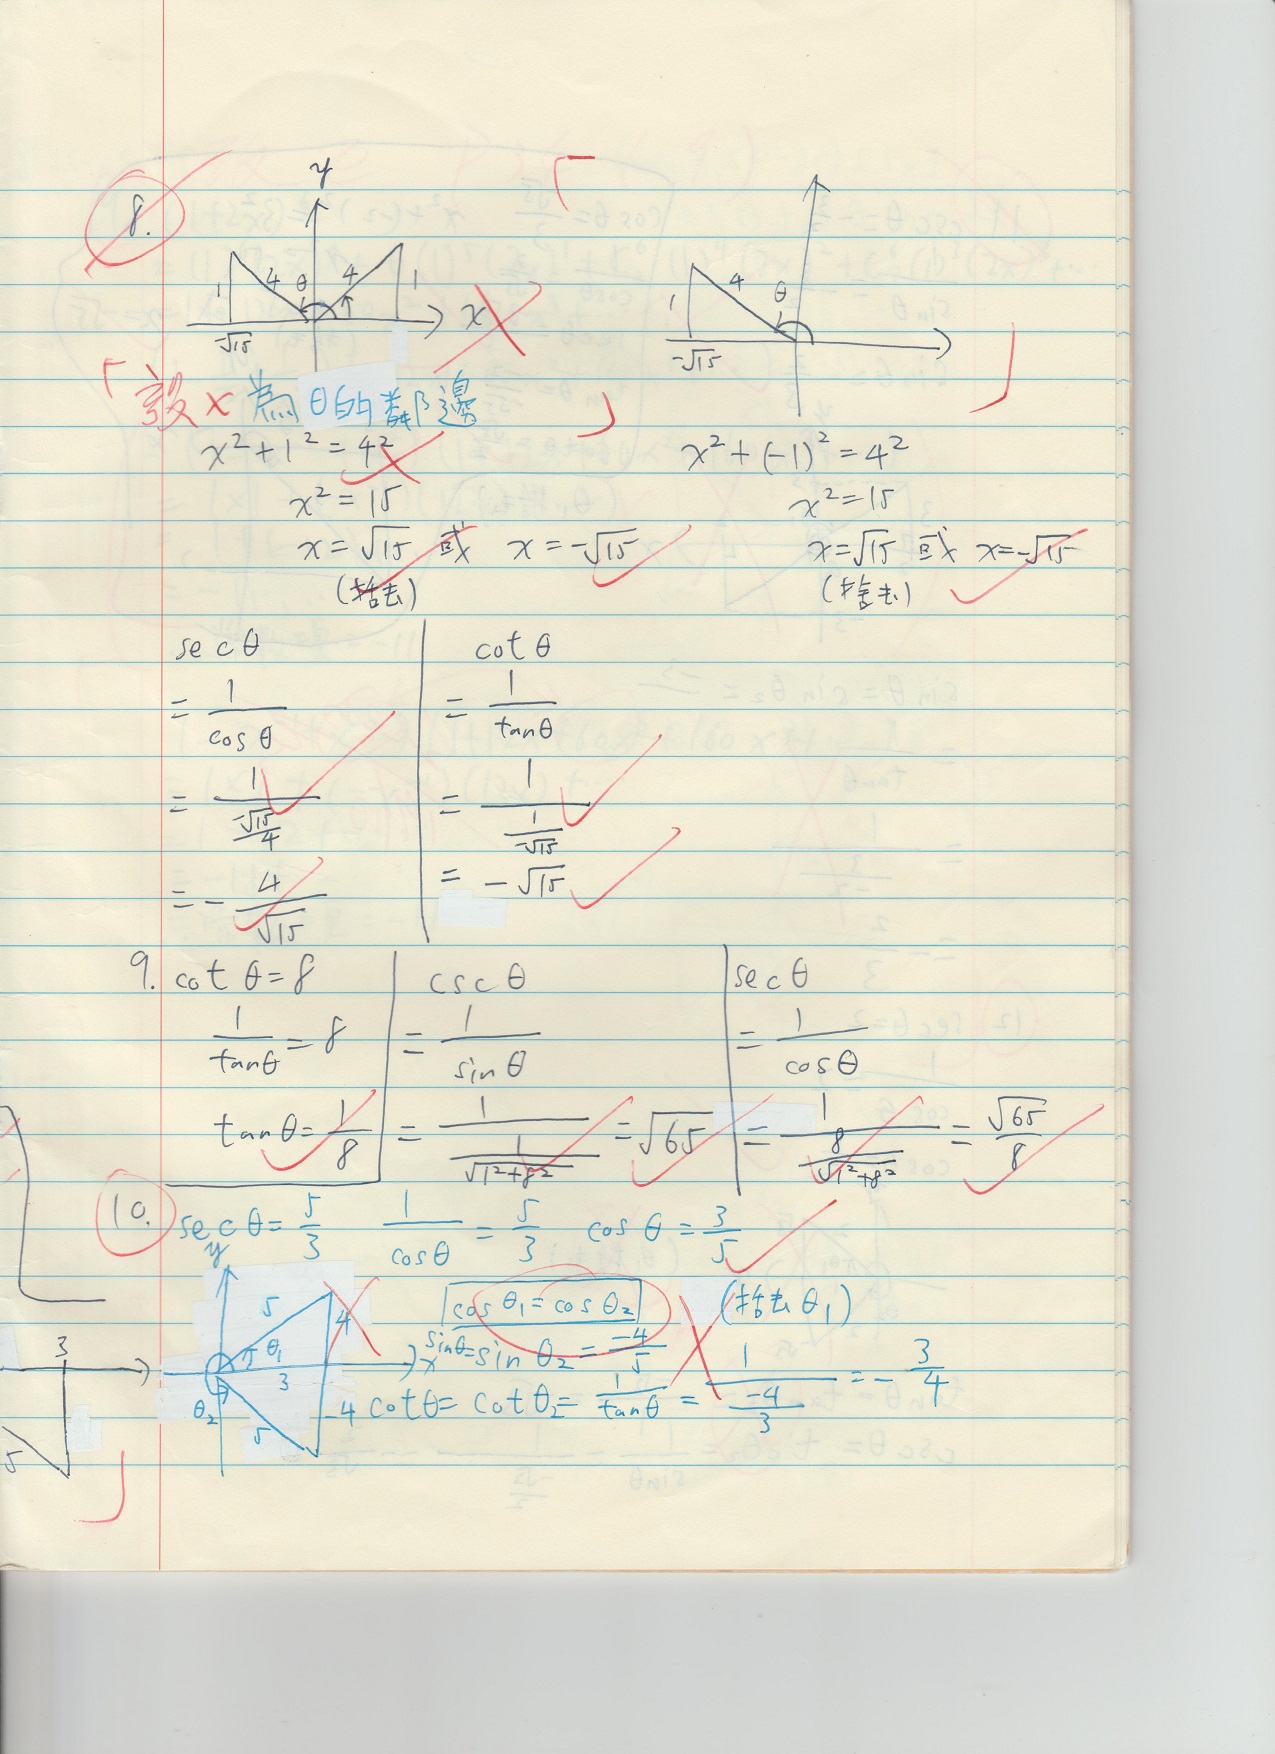 8.
y
1 4 θ 4 1
-√15
x
1 4 θ
-√15
設x為θ的鄰邊
x²+1²=4²
x²=15
x=√15 或 x=-√15
(捨去)
x²+(-1)²=4²
x²=15
x=√15 或 x=-√15
(捨去)
secθ
= 1/cosθ
= 1/(-√15/4)
= -4/√15
cotθ
= 1/tanθ
= 1/(1/-√15)
= -√15
9. cotθ=8
1/tanθ=8
tanθ=1/8
cscθ
= 1/sinθ
= 1/(1/√1²+8²) = √65
secθ
= 1/cosθ
= 1/(8/√1²+8²) = √65/8
10. secθ=5/3 1/cosθ=5/3 cosθ=3/5
y
5 4
θ₁
3
x
θ₂
5 -4
cosθ₁=cosθ₂ (捨去θ₁)
sinθ=sinθ₂=-4/5
cotθ=cotθ₂=1/tanθ=1/(-4/3)=-3/4
3
5